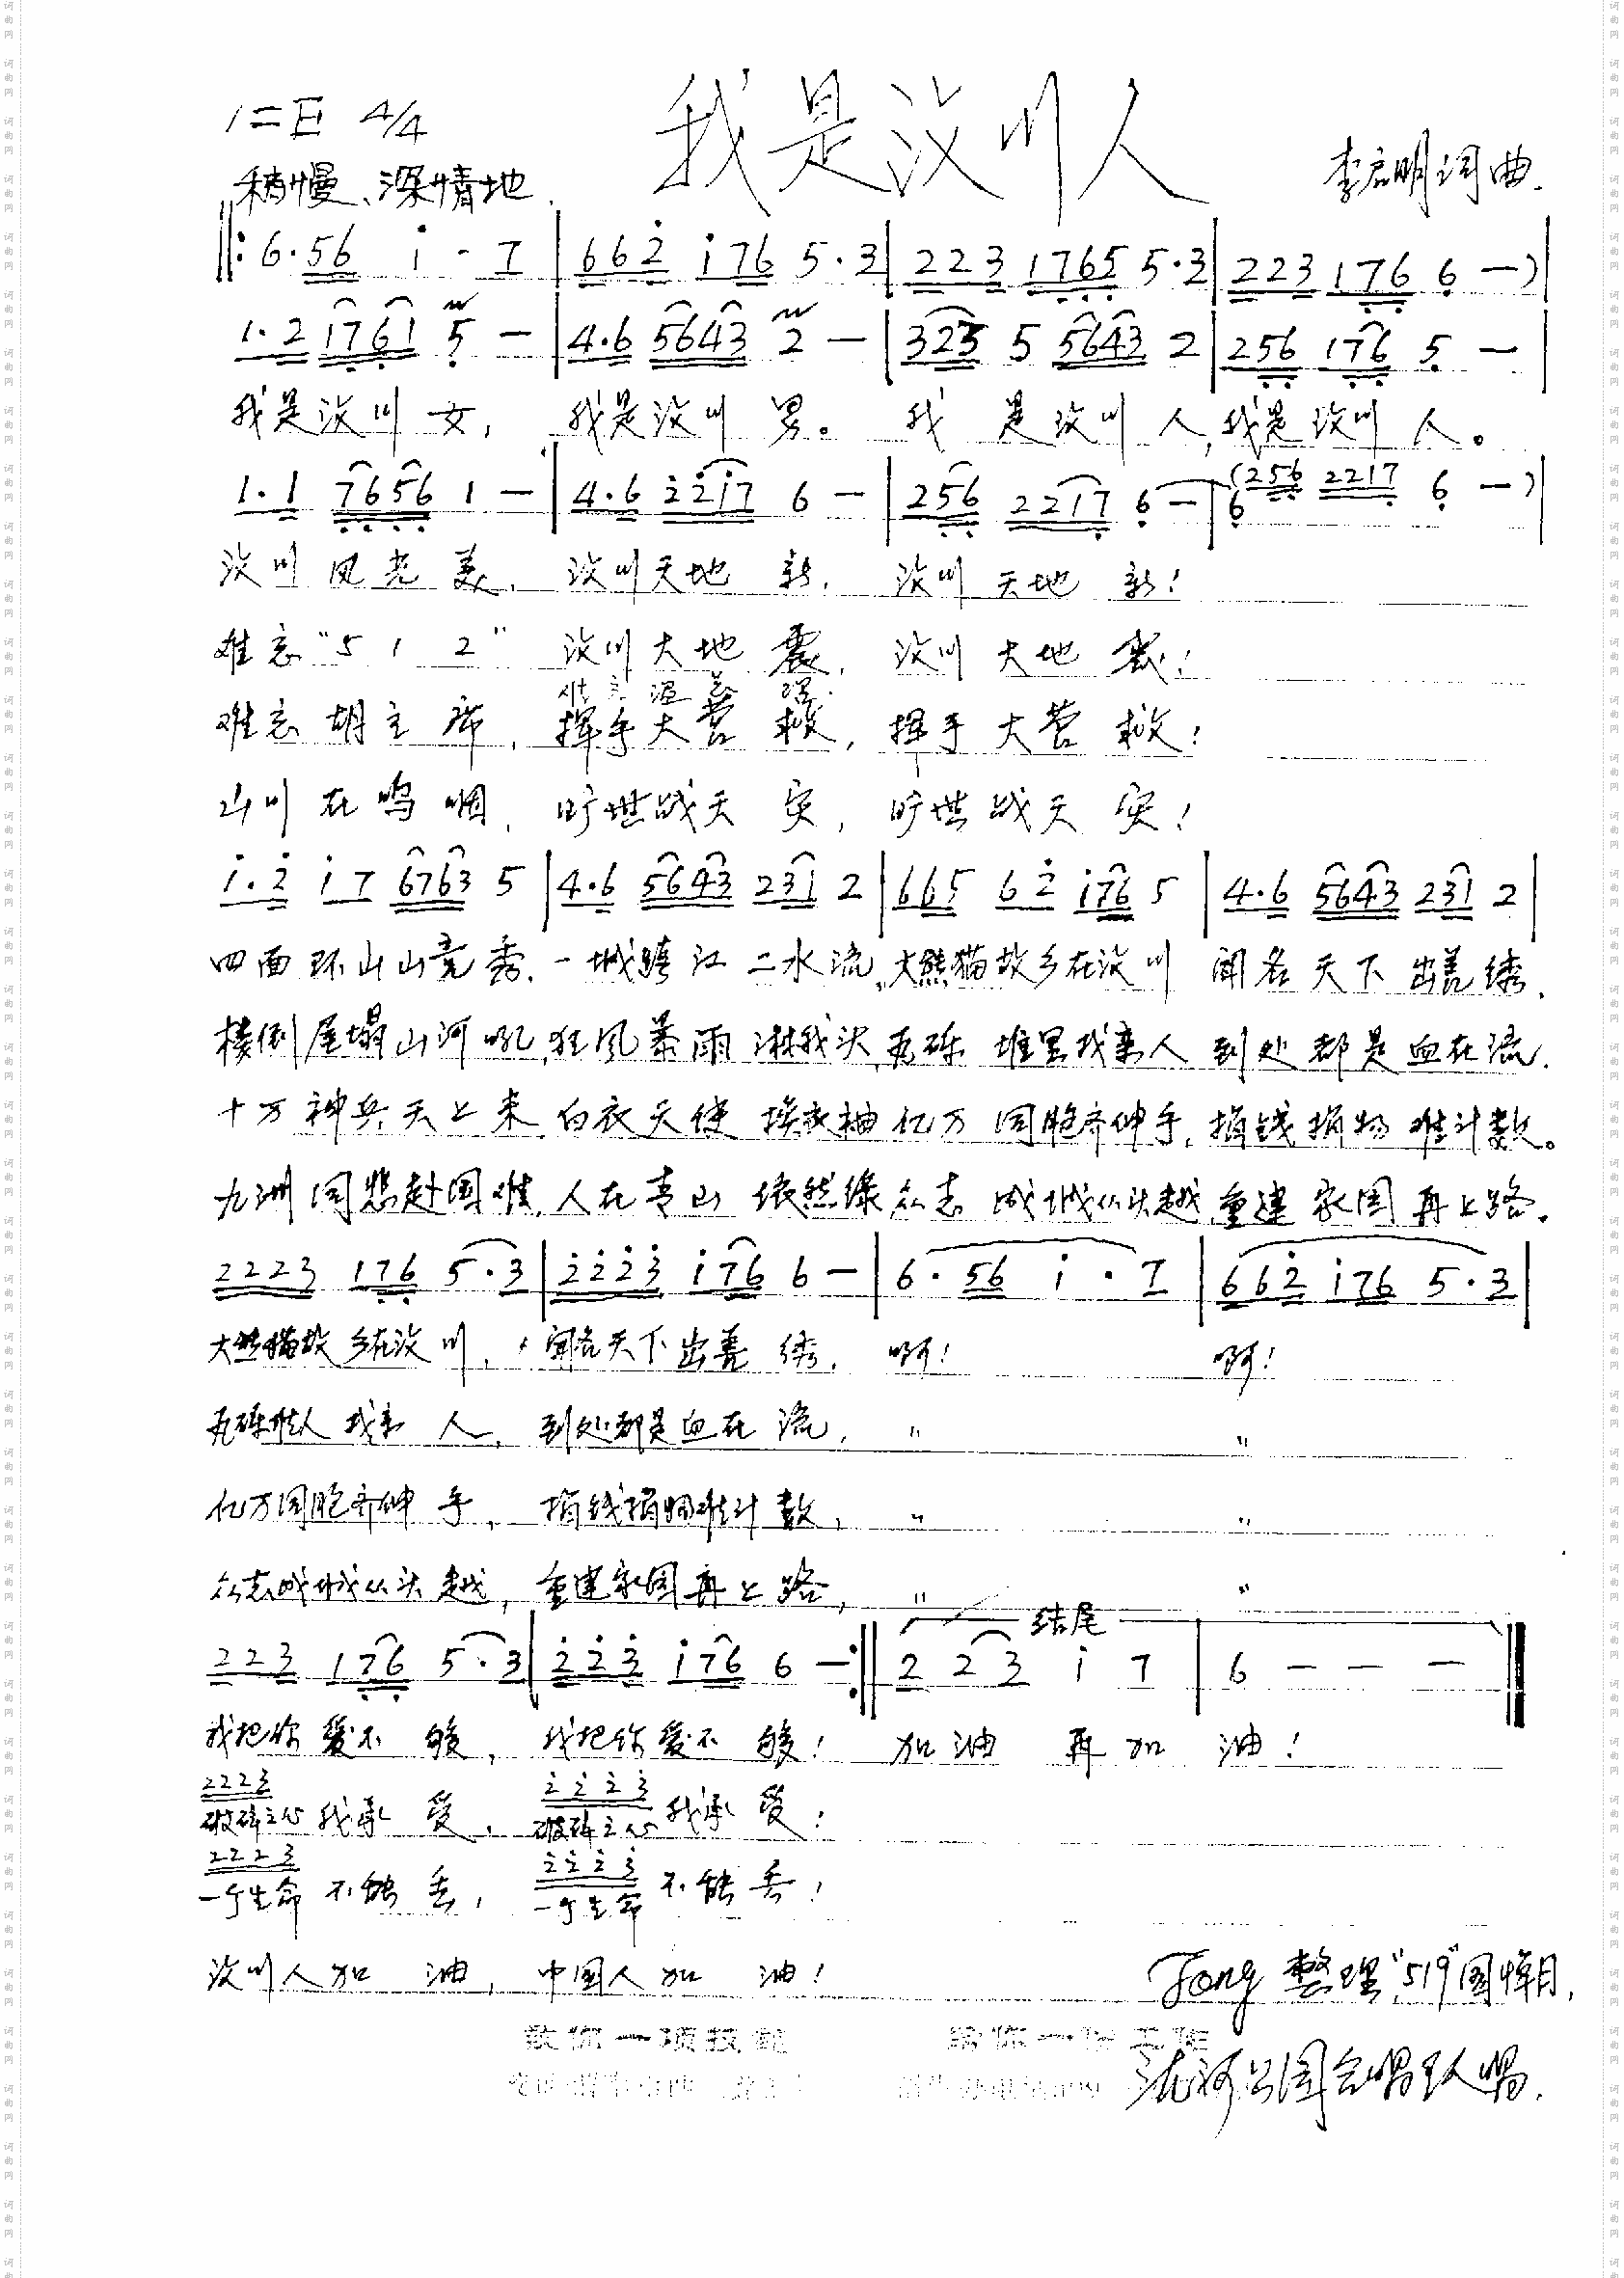 我是汶川人
1=E 4/4
稍慢、深情地
李启明词曲.
‖: 6·56 i·7 | 662 i76 5·3 | 223 1765 5·3 | 223 176 6 —) |
1·2 1761 5 — | 4·6 5643 2 — | 323 5 5643 2 | 256 176 5 — |
我是汶川女, 我是汶川男。 我是汶川人, 我是汶川人。
1·1 7656 1 — | 4·6 2217 6 — | 256 2217 6 — | 6 (256 2217 6 —) |
汶川风光美, 汶川天地新, 汶川天地新!
难忘"512" 汶川大地震, 汶川大地震!
难忘胡主席, 挥手大营救, 挥手大营救!
山川在鸣咽, 旷世战天灾, 旷世战天灾!
i·2 i7 6763 5 | 4·6 5643 231 2 | 665 62 i76 5 | 4·6 5643 231 2 |
四面环山山竞秀, 一城跨江二水流, 大熊猫故乡在汶川 闻名天下出羌绣,
楼倒屋塌山河吼, 狂风暴雨淋我头, 瓦砾堆里找亲人 到处都是血在流.
十万神兵天上来, 白衣天使挨衣袖 亿万同胞齐伸手, 捐钱捐物难计数。
九洲同悲赴国难, 人在青山依然绿 众志成城从头越, 重建家园再上路.
2223 176 5·3 | 2223 i76 6 — | 6·56 i·7 | 662 i76 5·3 |
大熊猫故乡在汶川, 闻名天下出羌绣, 啊! 啊!
瓦砾堆人找亲人, 到处都是血在流, " "
亿万同胞齐伸手, 捐钱捐物难计数, " "
众志成城从头越, 重建家园再上路, " "
结尾
223 176 5·3 | 223 i76 6 — :‖ 2 23 i 7 | 6 — — — ‖
我把你爱不够, 我把你爱不够! 加油再加油!
2223 2223
破碎之心我承受, 破碎之心我承受!
2223 2223
一个生命不能丢, 一个生命不能丢!
汶川人加油, 中国人加油!
Tong 整理"519"国悼日,
教你一项技能 给你一份工作
沈河公园合唱团人唱.